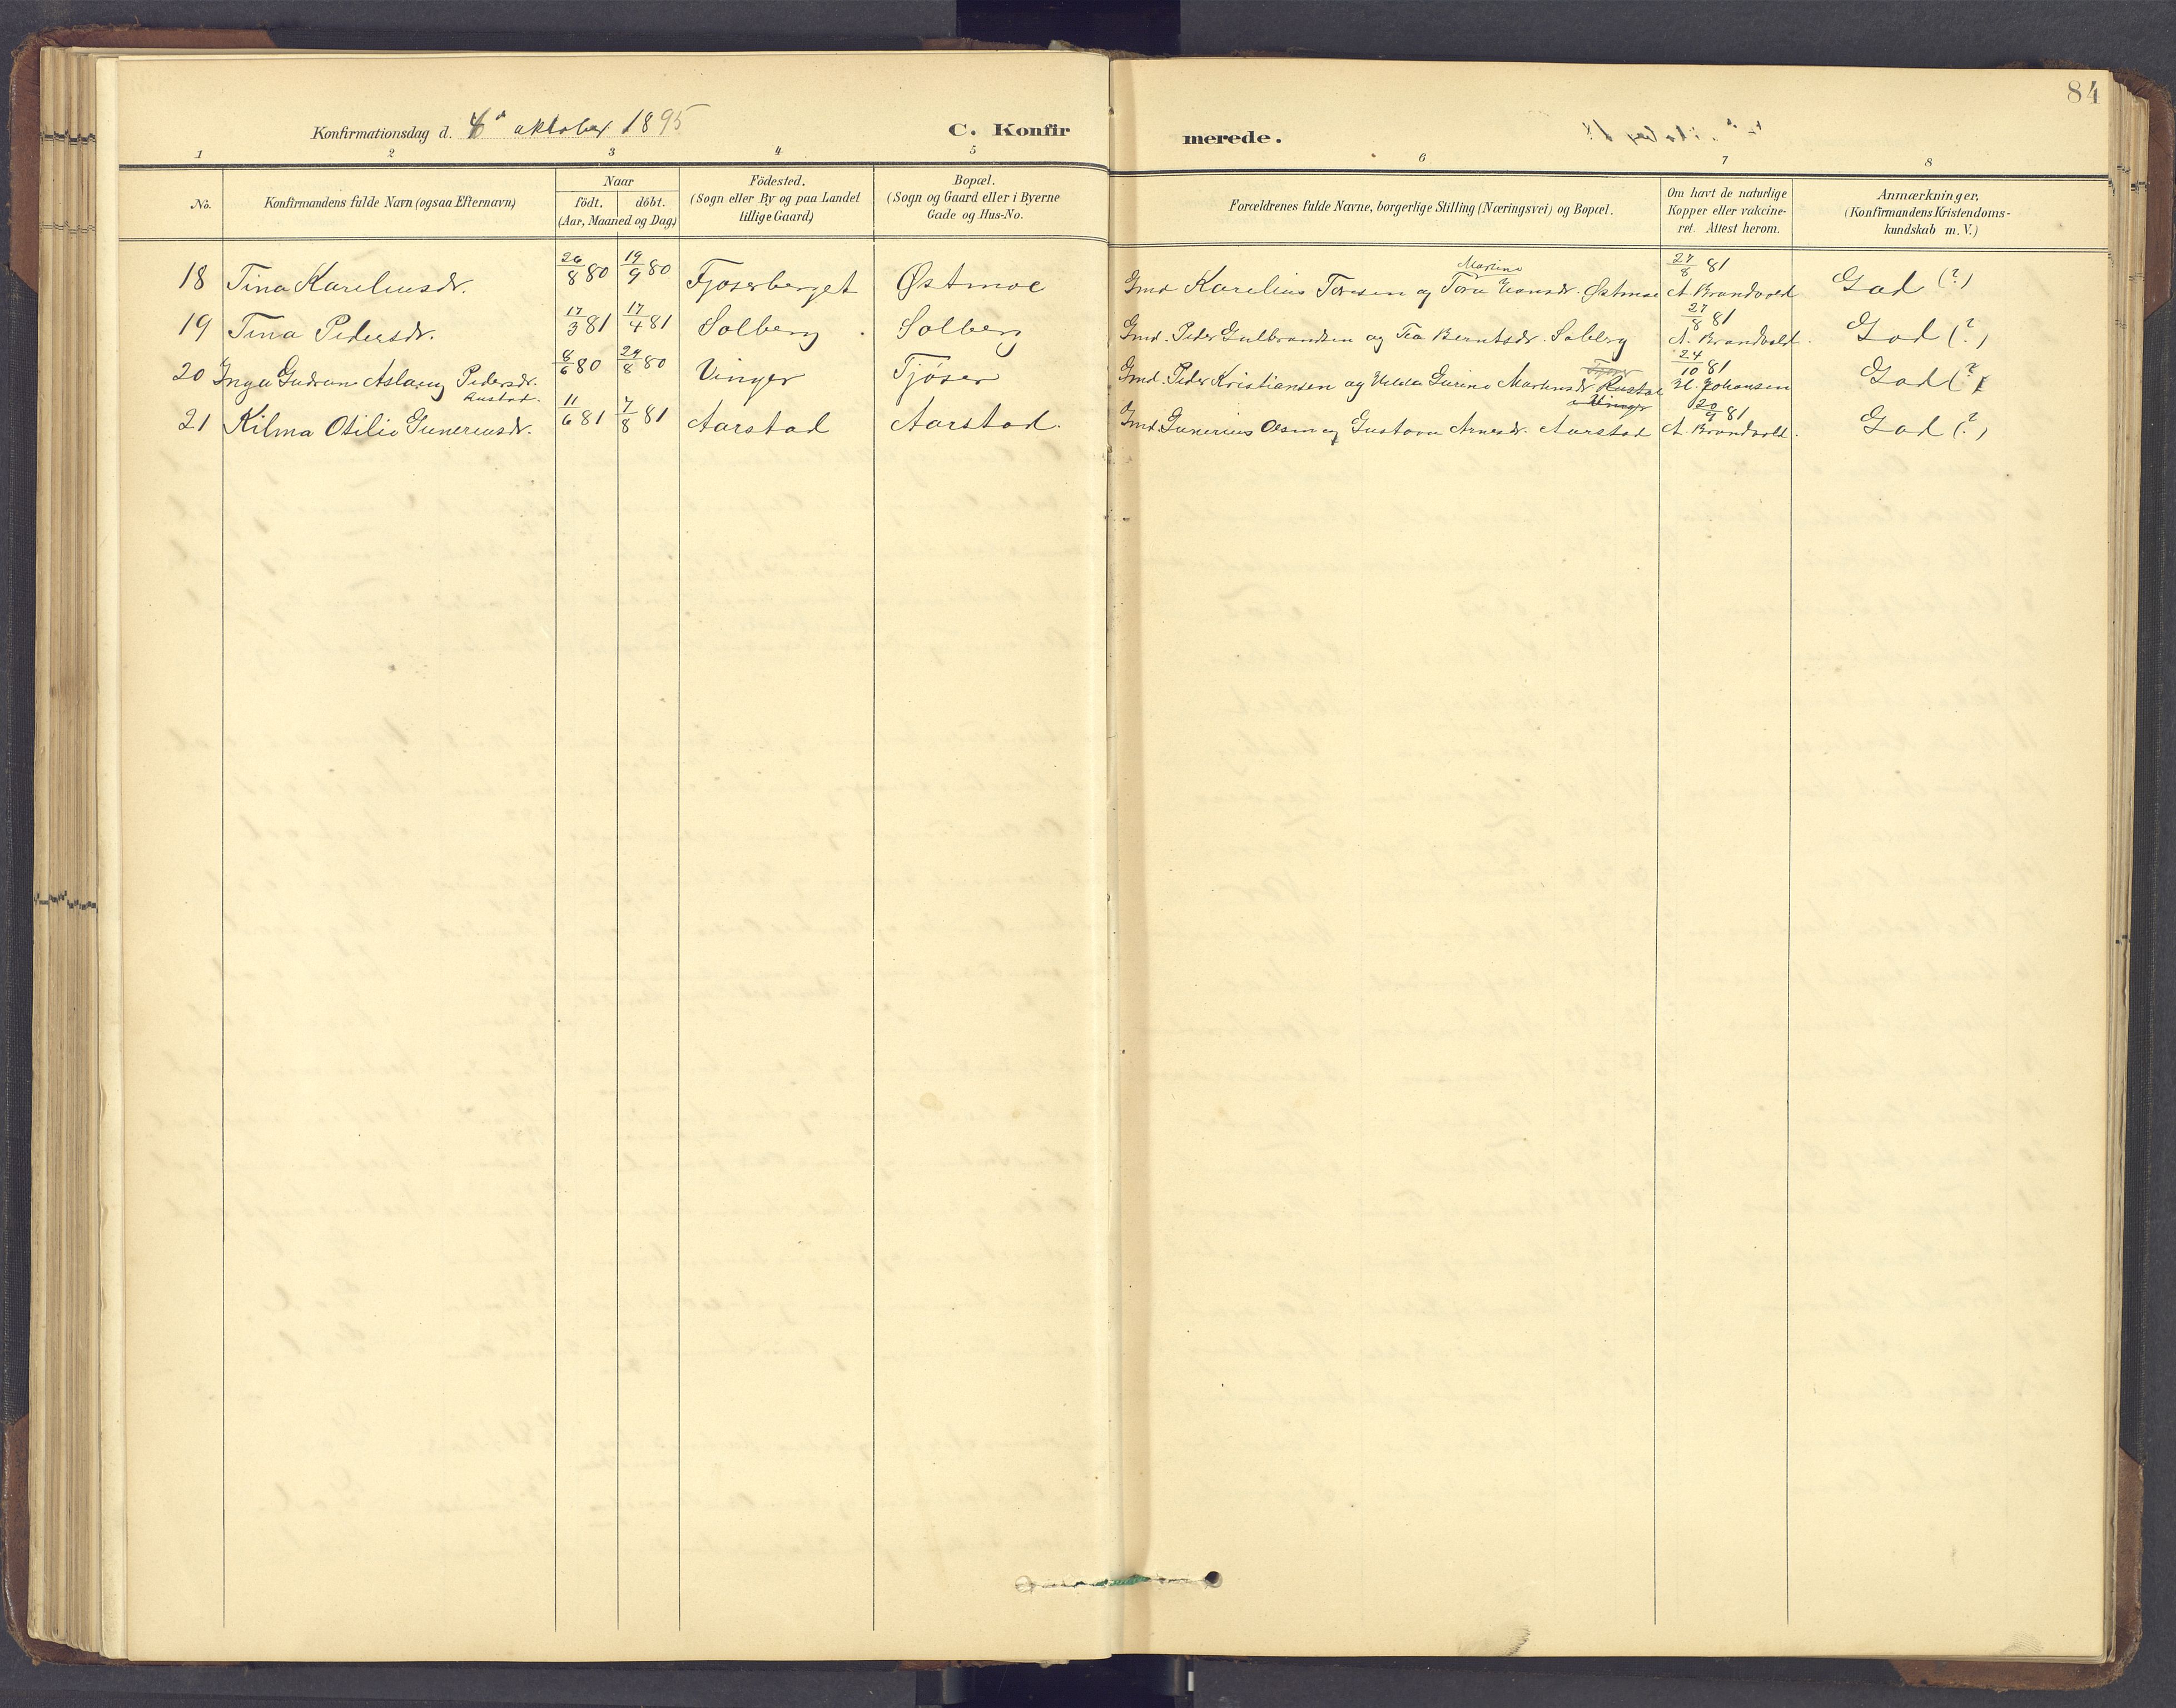 84
Konfirmationsdag d. 6' oktober 1895
C. Konfirmerede.
1 2 3 4 5 6 7 8
No.
Konfirmandens fulde Navn (ogsaa Efternavn)
Naar
födt. döbt.
(Aar, Maaned og Dag)
Födested.
(Sogn eller By og paa Landet
tillige Gaard)
Bopæl.
(Sogn og Gaard eller i Byerne
Gade og Hus-No.
Forældrenes fulde Navne, borgerlige Stilling (Næringsvei) og Bopæl.
Om havt de naturlige
Kopper eller vakcine-
ret. Attest herom.
Anmærkninger,
(Konfirmandens Kristendoms-
kundskab m. V.)
Martine
18 Tina Kareliusdr. 26/8 80 19/9 80 Fjøserberget Østmoe Gmd Karelius Toresen og Hansdr. Østmoe 27/8 81 A. Brandvold God (?)
19 Tina Pedersdr. 17/3 81 17/4 81 Solberg Solberg Gmd. Peder Gulbrandsen og Tea Berntsdr. Solberg 27/8 81 A. Brandvold. God (?)
20 Inga Gudrun Aslaug Pedersdr. Rustad. 8/6 80 24/8 80 Vinger Tjøser Gmd. Peder Kristiansen og Hulda Gurine Martinsdr. Rustad i Vinger 24/10 81 H. Johansen God (?)
21 Kilma Otilie Gunereusdr. 11/6 81 7/8 81 Aarstad Aarstad. Gmd. Gunerius Olsen og Gustava Arnesdr. Aarstad 20/9 81 A. Brandvold. God (?)